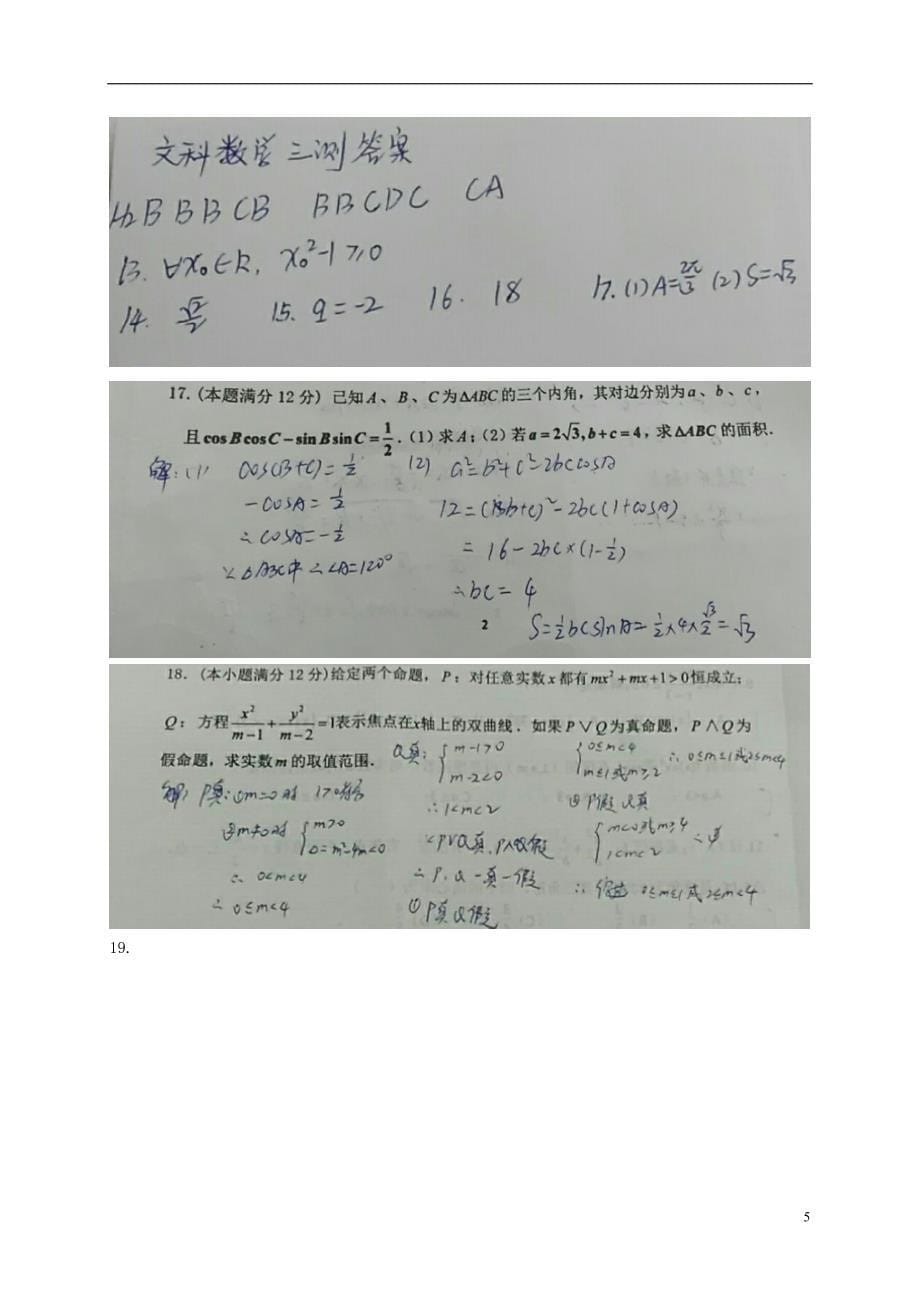 文科数学三测答案
1-12 B B B C B B B C D C C A
13. ∀x₀∈R, x₀²-1≥0
14. √2/2 15. q=-2 16. 18 17.(1)A=2π/3 (2)S=√3
17. (本题满分 12 分) 已知 A、B、C 为△ABC 的三个内角，其对边分别为 a、b、c，
且 cos B cos C − sin B sin C = 1/2 .(1) 求 A；(2) 若 a = 2√3, b + c = 4，求 △ABC 的面积.
解：(1) cos(B+C)=1/2
-cosA=1/2
∴cosA=-1/2
∵△ABC中 ∴∠A=120°
(2) a²=b²+c²-2bccosA
12=(b+c)²-2bc(1+cosA)
=16-2bc×(1-1/2)
∴bc=4
2
S=1/2bcsinA=1/2×4×√3/2=√3
18. (本小题满分 12 分)给定两个命题，P：对任意实数 x 都有 mx²+mx+1>0 恒成立；
Q：方程 x²/(m−1) + y²/(m−2) =1表示焦点在x轴上的双曲线．如果 P∨Q 为真命题，P∧Q 为
假命题，求实数 m 的取值范围．
解：P真：①m=0时 1>0
②m≠0时 { m>0
Δ=m²-4m<0
∴ 0<m<4
∴ 0≤m<4
Q真： { m-1>0
m-2<0
∴1<m<2
∵P∨Q真，P∧Q假
∴P、Q一真一假
①P真Q假
{ 0≤m<4
m≤1或m≥2 ∴0≤m≤1或2≤m<4
②P假Q真
{ m<0或m≥4
1<m<2
∴ 0≤m≤1或2≤m<4
19.
5